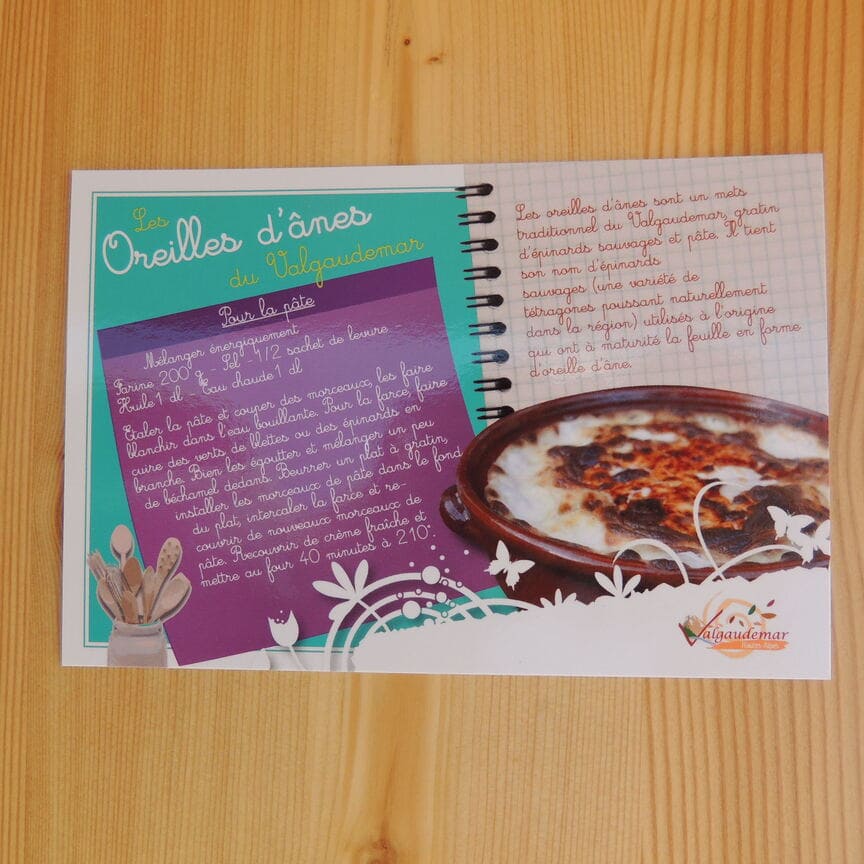 Les
Oreilles d'ânes
du Valgaudemar
Pour la pâte
Mélanger énergiquement
Farine 200 g - Sel - 1/2 sachet de levure
Huile 1 dl - Eau chaude 1 dl
Etaler la pâte et couper des morceaux, les faire
blanchir dans l'eau bouillante. Pour la farce, faire
cuire des verts de blettes ou des épinards en
branche. Bien les égoutter et mélanger un peu
de béchamel dedans. Beurrer un plat à gratin,
installer les morceaux de pâte dans le fond
du plat, intercaler la farce et re-
couvrir de nouveaux morceaux de
pâte. Recouvrir de crème fraîche et
mettre au four 40 minutes à 210°.
Les oreilles d'ânes sont un mets
traditionnel du Valgaudemar, gratin
d'épinards sauvages et pâte. Il tient
son nom d'épinards
sauvages (une variété de
tétragones poussant naturellement
dans la région) utilisés à l'origine
qui ont à maturité la feuille en forme
d'oreille d'âne.
Valgaudemar
Hautes-Alpes